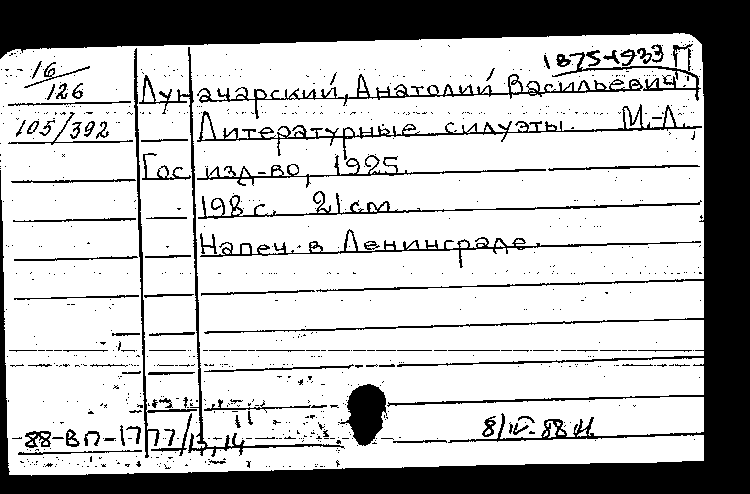 1875-1933 П
16/126 Луначарский, Анатолий Васильевич.
105/392 Литературные силуэты. М.-Л.,
Гос. изд-во, 1925.
198 с. 21 см
Напеч. в Ленинграде.
88-ВП-1777/13,14
8/IV-88